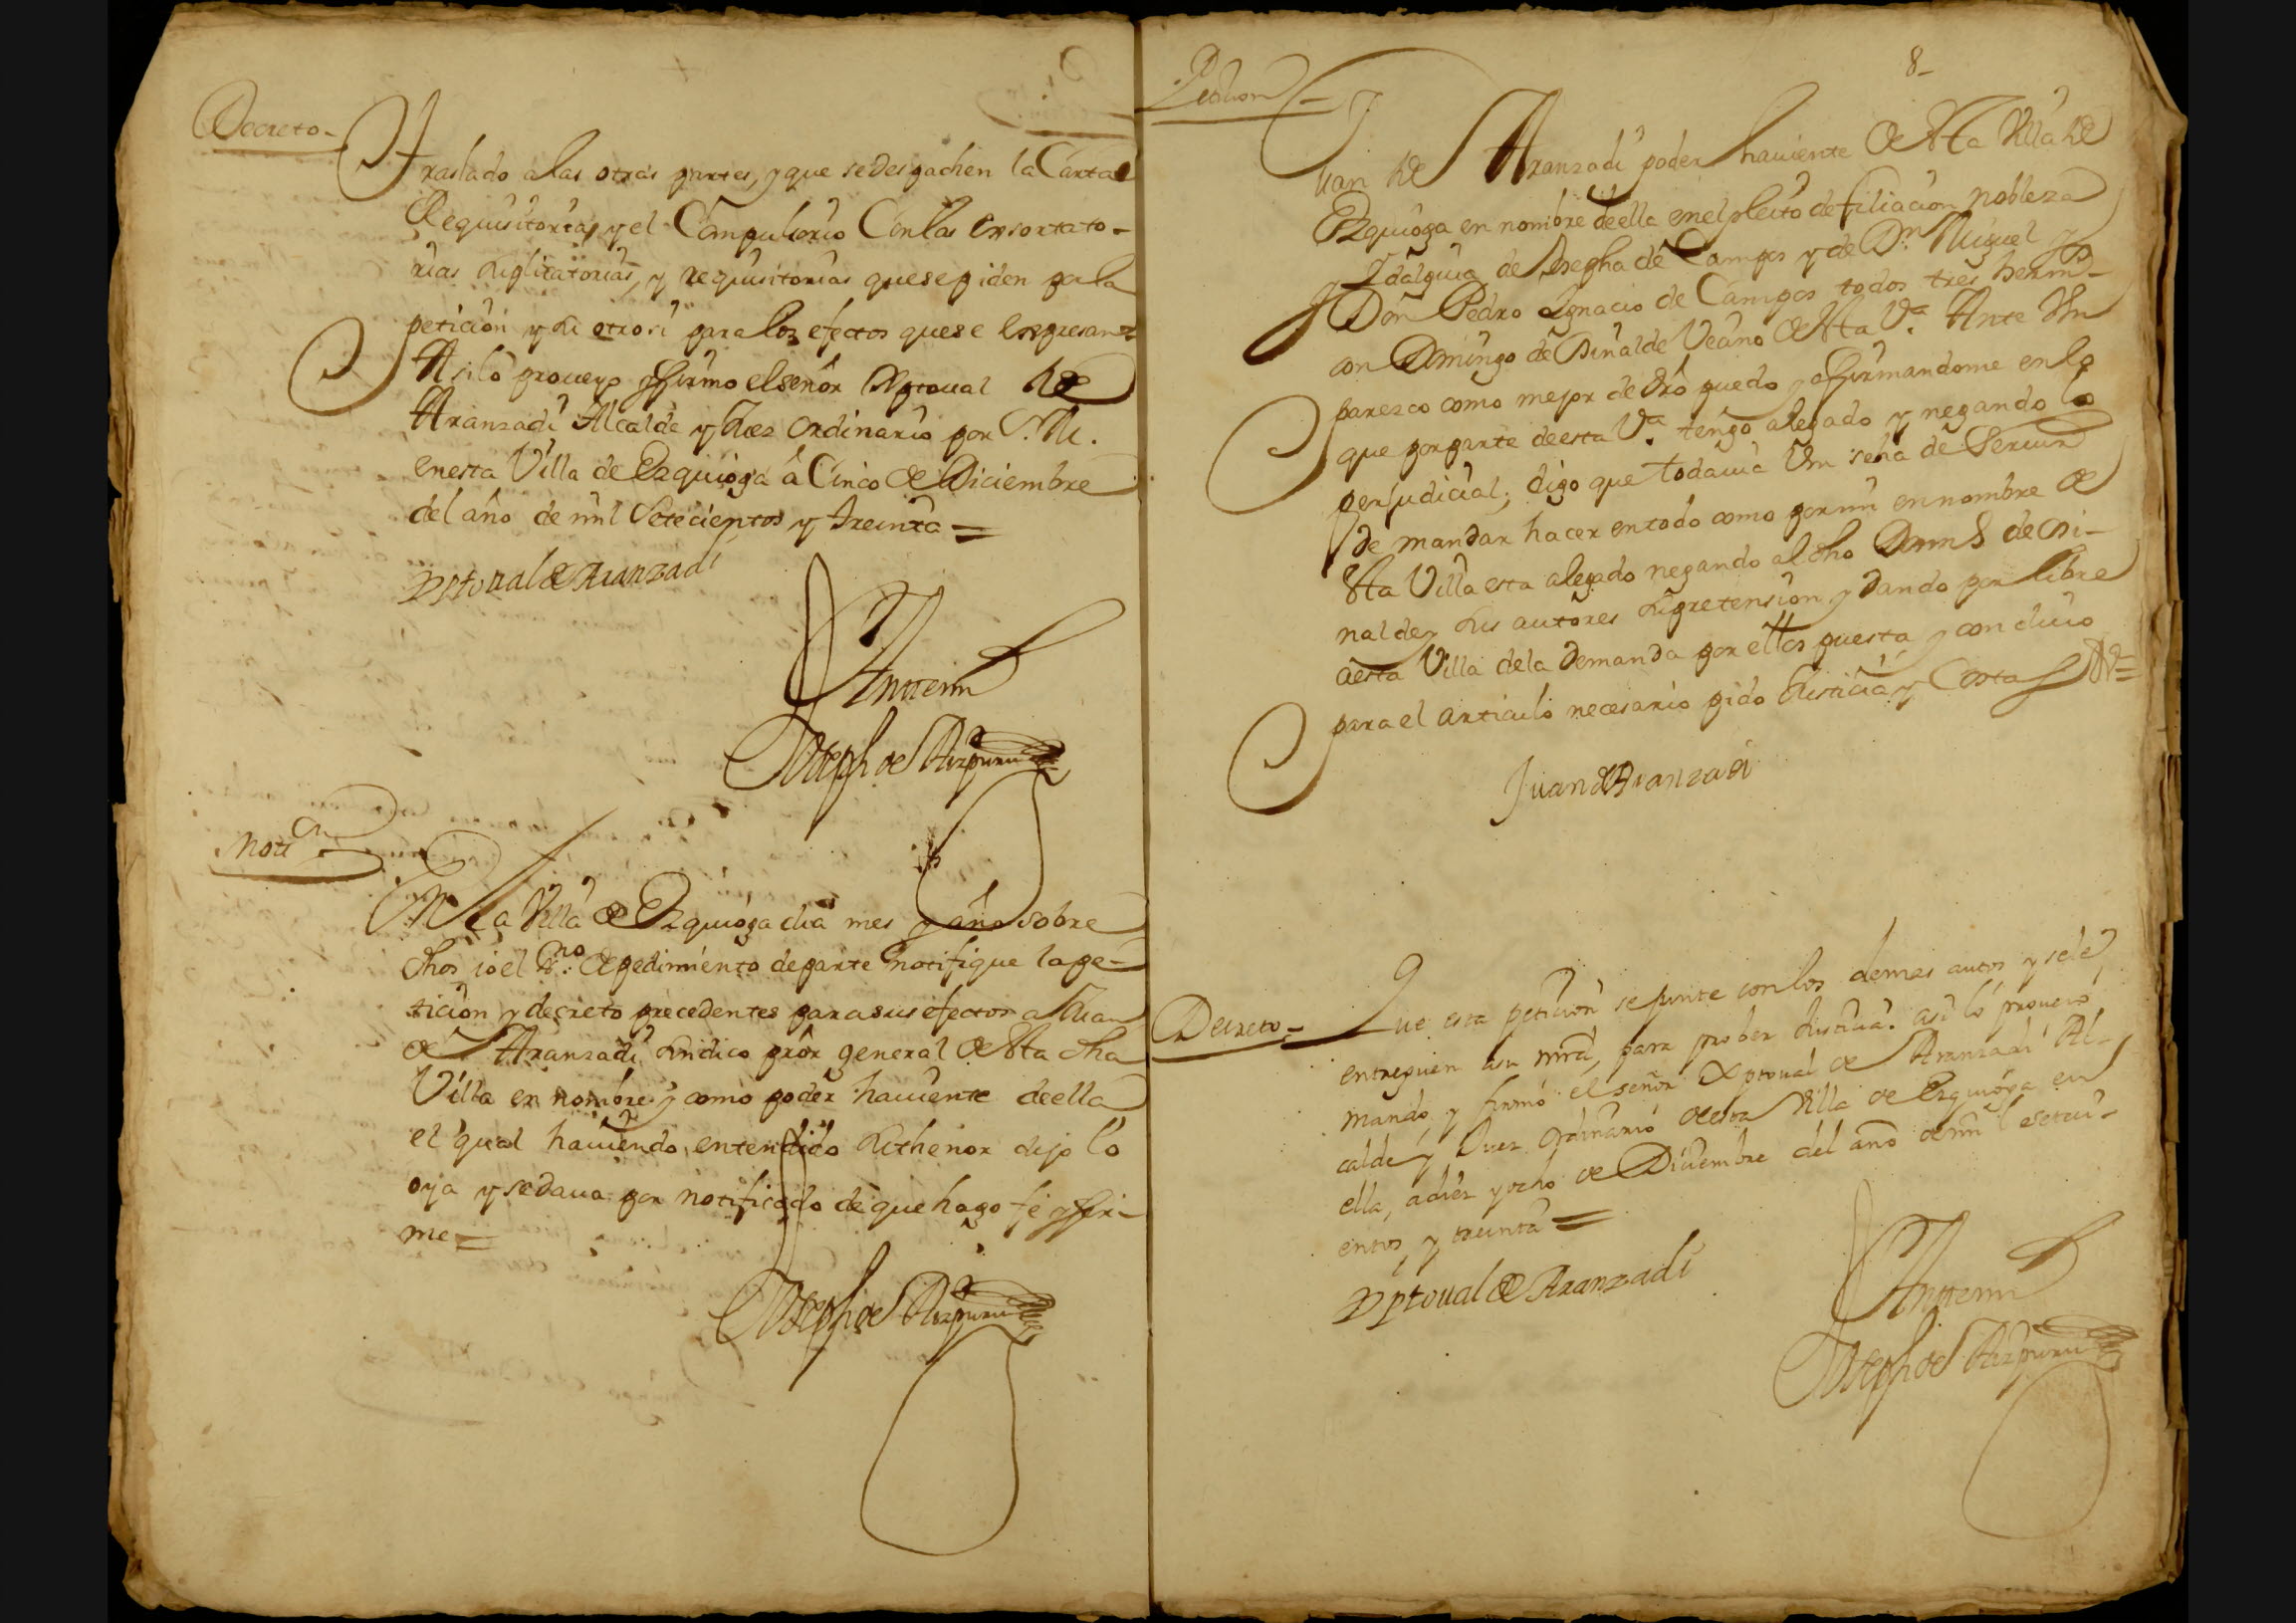 Decreto-
Traslado a las otras partes, y que se despachen la Carta
Requisitoria, y el Compulsorio Con las Exsortato-
rias Suplicatorias, y requisitorias que se piden por la
peticion y su otrosi para los efectos que se Expresan=
Asi lo proueyo y firmo el señor Xptoual de
Aranzadi Alcalde y Juez ordinario por S. M.
en esta Villa de Ezquioga â Cinco de Diciembre
del año de mil Setecientos y treinta=
Xptoual de Aranzadi
Antemi
Joseph de Aizpuru
Notion
En la Villa de Ezquioga dia mes y año sobre
dhos io el Sno de pedimiento de parte notifique la pe-
ticion y decreto precedentes para sus efectos a Juan
de Aranzadi Sindico pror general desta dha
Villa en nombre y como poder hauiente de ella
el qual hauiendo entendido su thenor dijo lo
oya y se daua por notificado de que hago fe y fir-
me=
Joseph de Aizpuru
8-
Peticion=
Juan de Aranzadi poder hauiente desta Villa de
Ezquioga en nombre de ella en el pleito de filiacion nobleza
y Idalguia de Josepha de Campos y de Dn Miguel y
Don Pedro Ignacio de Campos todos tres herms
con Domingo de Dinalde Vecino desta Va. Ante Vm
parezco como mejor de dro puedo y afirmandome en lo
que por parte de esta Va. tengo alegado y negando lo
perjudicial; digo que todauia Vm se ha de Seruir
de mandar hacer en todo como por mi en nombre de
sta Villa esta alegado negando al dho Domo de Di-
nalde y sus autores su pretension y dando por libre
a esta Villa de la demanda por ellos puesta y concluio
para el articulo necesario pido Justicia y Costas
Juan de Aranzadi
Decreto=
Que esta peticion se junte con los demas autos y se le
entreguen a su mrd, para prober Justicia. asi lo proueio
mando, y firmó el señor Xptoual de Aranzadi Al-
calde y Juez Ordinario de esta Villa de Ezquioga en
ella, a diez y ocho de Diciembre del año de mil setezi-
entos y treinta=
Xptoual de Aranzadi
Antemi
Joseph de Aizpuru